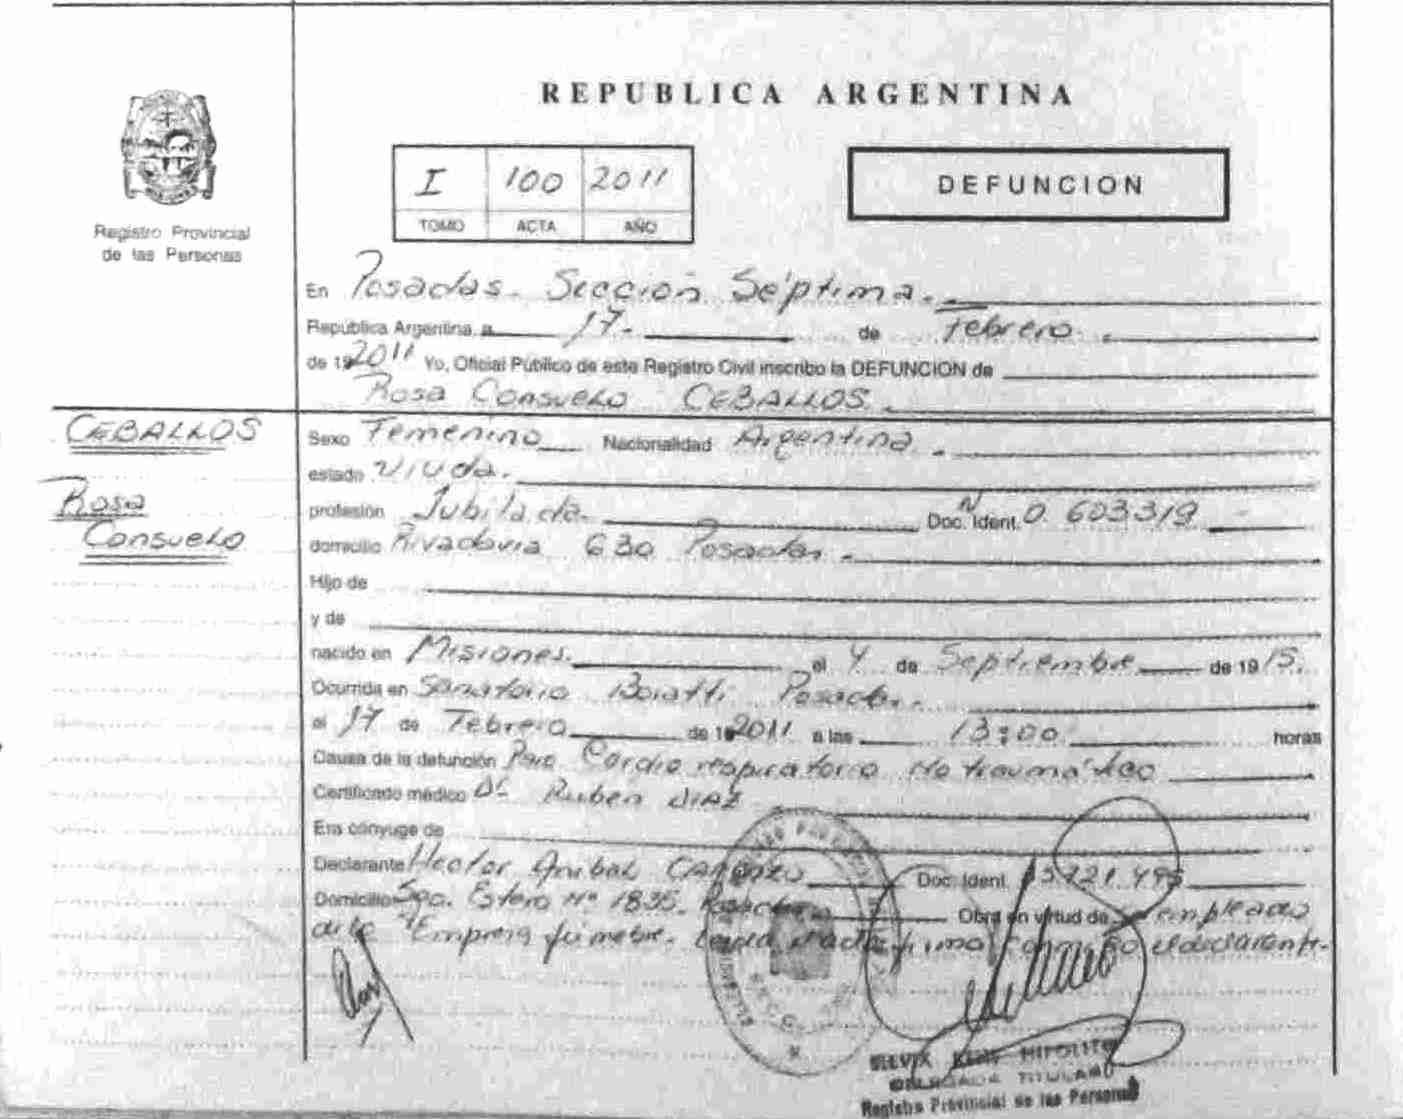 REPUBLICA ARGENTINA
Registro Provincial
de las Personas
I 100 2011
TOMO ACTA AÑO
DEFUNCION
En Posadas. Sección Séptima.
República Argentina, a 17. de Febrero.
de 192011 Yo, Oficial Público de este Registro Civil inscribo la DEFUNCION de
Rosa Consuelo CEBALLOS.
CEBALLOS
Rosa
Consuelo
Sexo Femenino Nacionalidad Argentina.
estado Viuda.
profesión Jubilada. Doc. Ident. N 0.603319
domicilio Rivadavia 630 Posadas.
Hijo de
y de
nacido en Misiones. el 4 de Septiembre de 1915.
Ocurrida en Sanatorio Boratti Posadas.
el 17 de Febrero de 192011 a las 13:00 horas
Causa de la defunción Paro Cardio respiratorio No traumático
Certificado médico Dr Ruben DIAZ
Era cónyuge de
Declarante Hector Anibal Doc. Ident.
Domicilio Sgo. Estero Nº 1835. Posadas Obra en virtud de ser empleado
de la Empresa fúnebre. Leída el acta firma conmigo el declarante.
HIPOLITO
DELEGADA TITULAR
Registro Provincial de las Personas